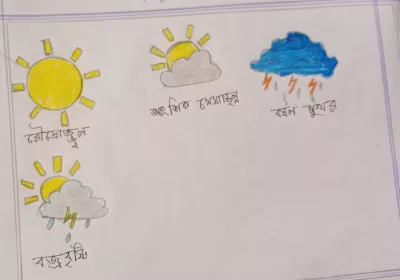 রৌদ্রোজ্জ্বল
আংশিক মেঘাচ্ছন্ন
বর্ষন মুখর
বজ্রবৃষ্টি